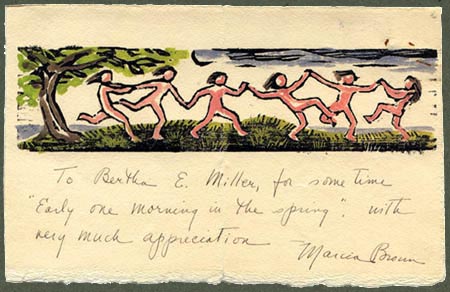 To Bertha E. Miller, for some time
"Early one morning in the spring". with
very much appreciation
Marcia Brown